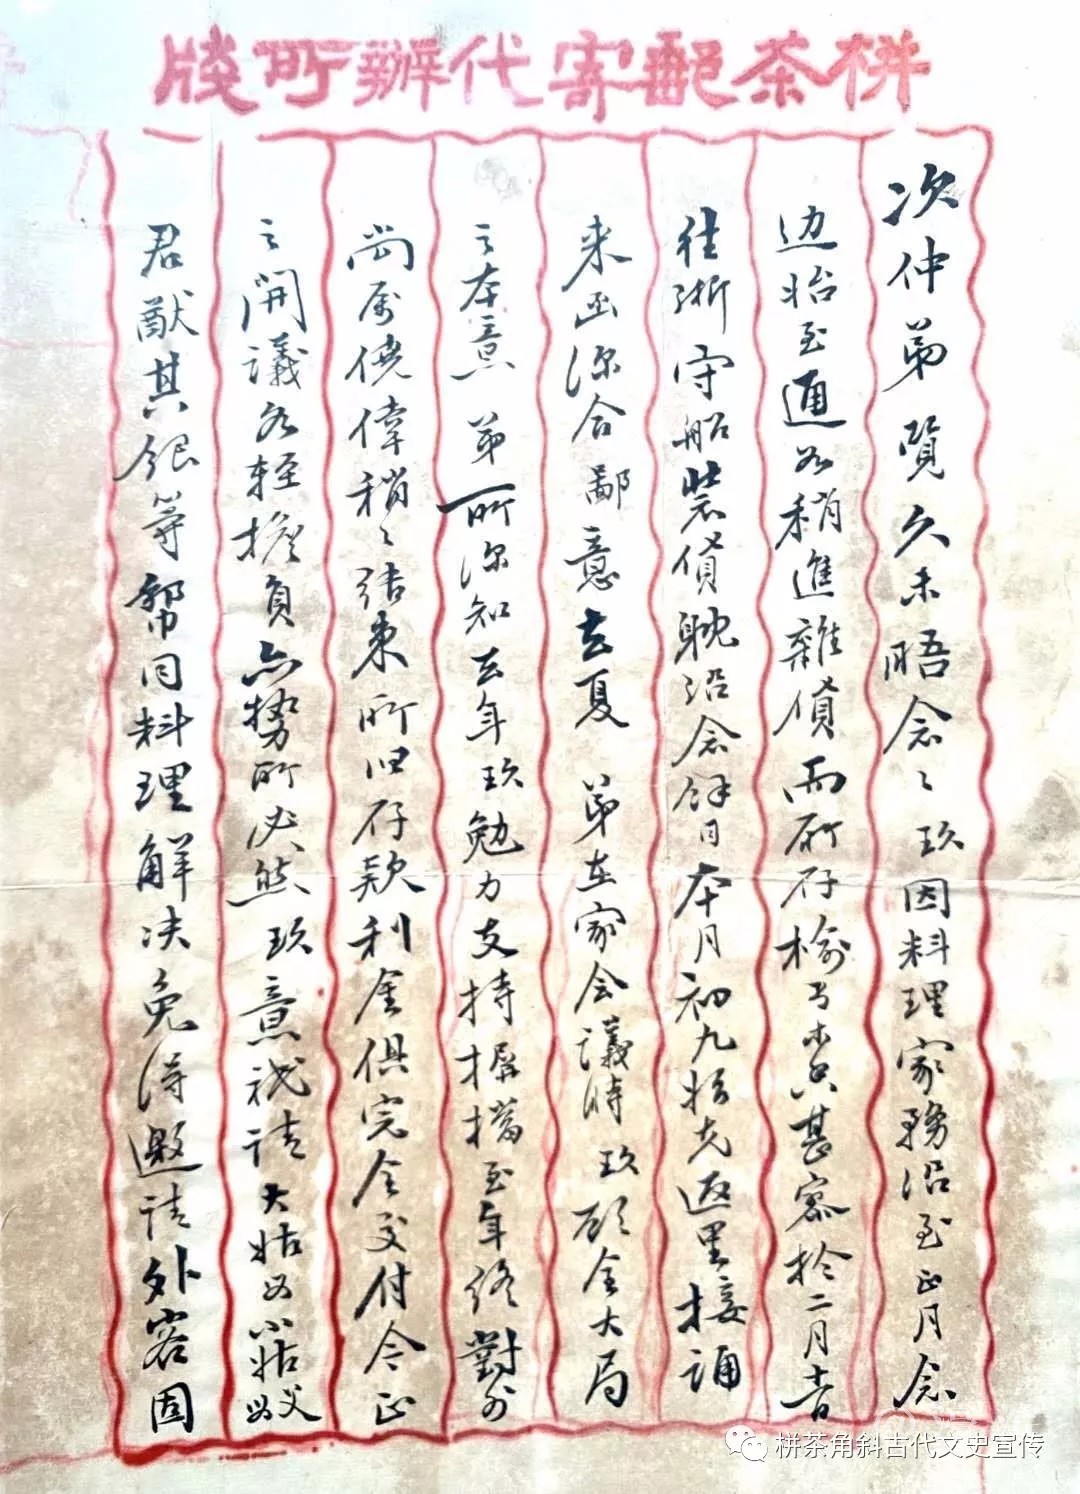 栟茶郵寄代辦所牋
次仲弟覽久未晤念々玖因料理家務沿至正月念
边始至通為稍進雜貨而所存榆木甚寡於二月
往浙守船裝貨耽沿念餘日本月初九始克返里接誦
来函深合鄙意去夏 弟在家会議時玖顧全大局
之本意 弟所深知去年玖勉力支持摒擋至年終對外
尚屬僥倖稍々结束所旧存款利金俱完全交付今正
之開議為輕擔負亦勢所必然玖意祇請大姑父小姑父
君猷其銀等幫同料理解决免得邀請外客固
栟茶角斜古代文史宣传